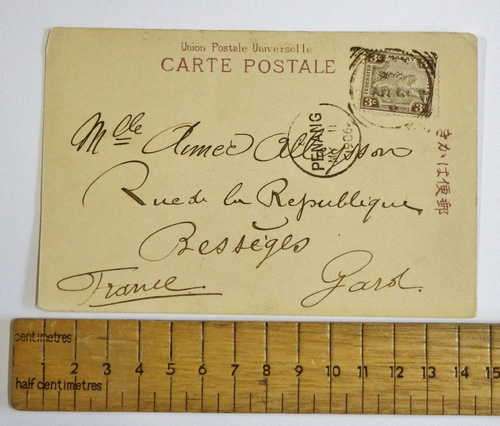 Union Postale Universelle
CARTE POSTALE
3c
3c
PENANG
11
1906
きかは便郵
Mlle Aimée
Rue de la République
Bessèges
France
Gard.
centimetres
1 2 3 4 5 6 7 8 9 10 11 12 13 14 15
half centimetres